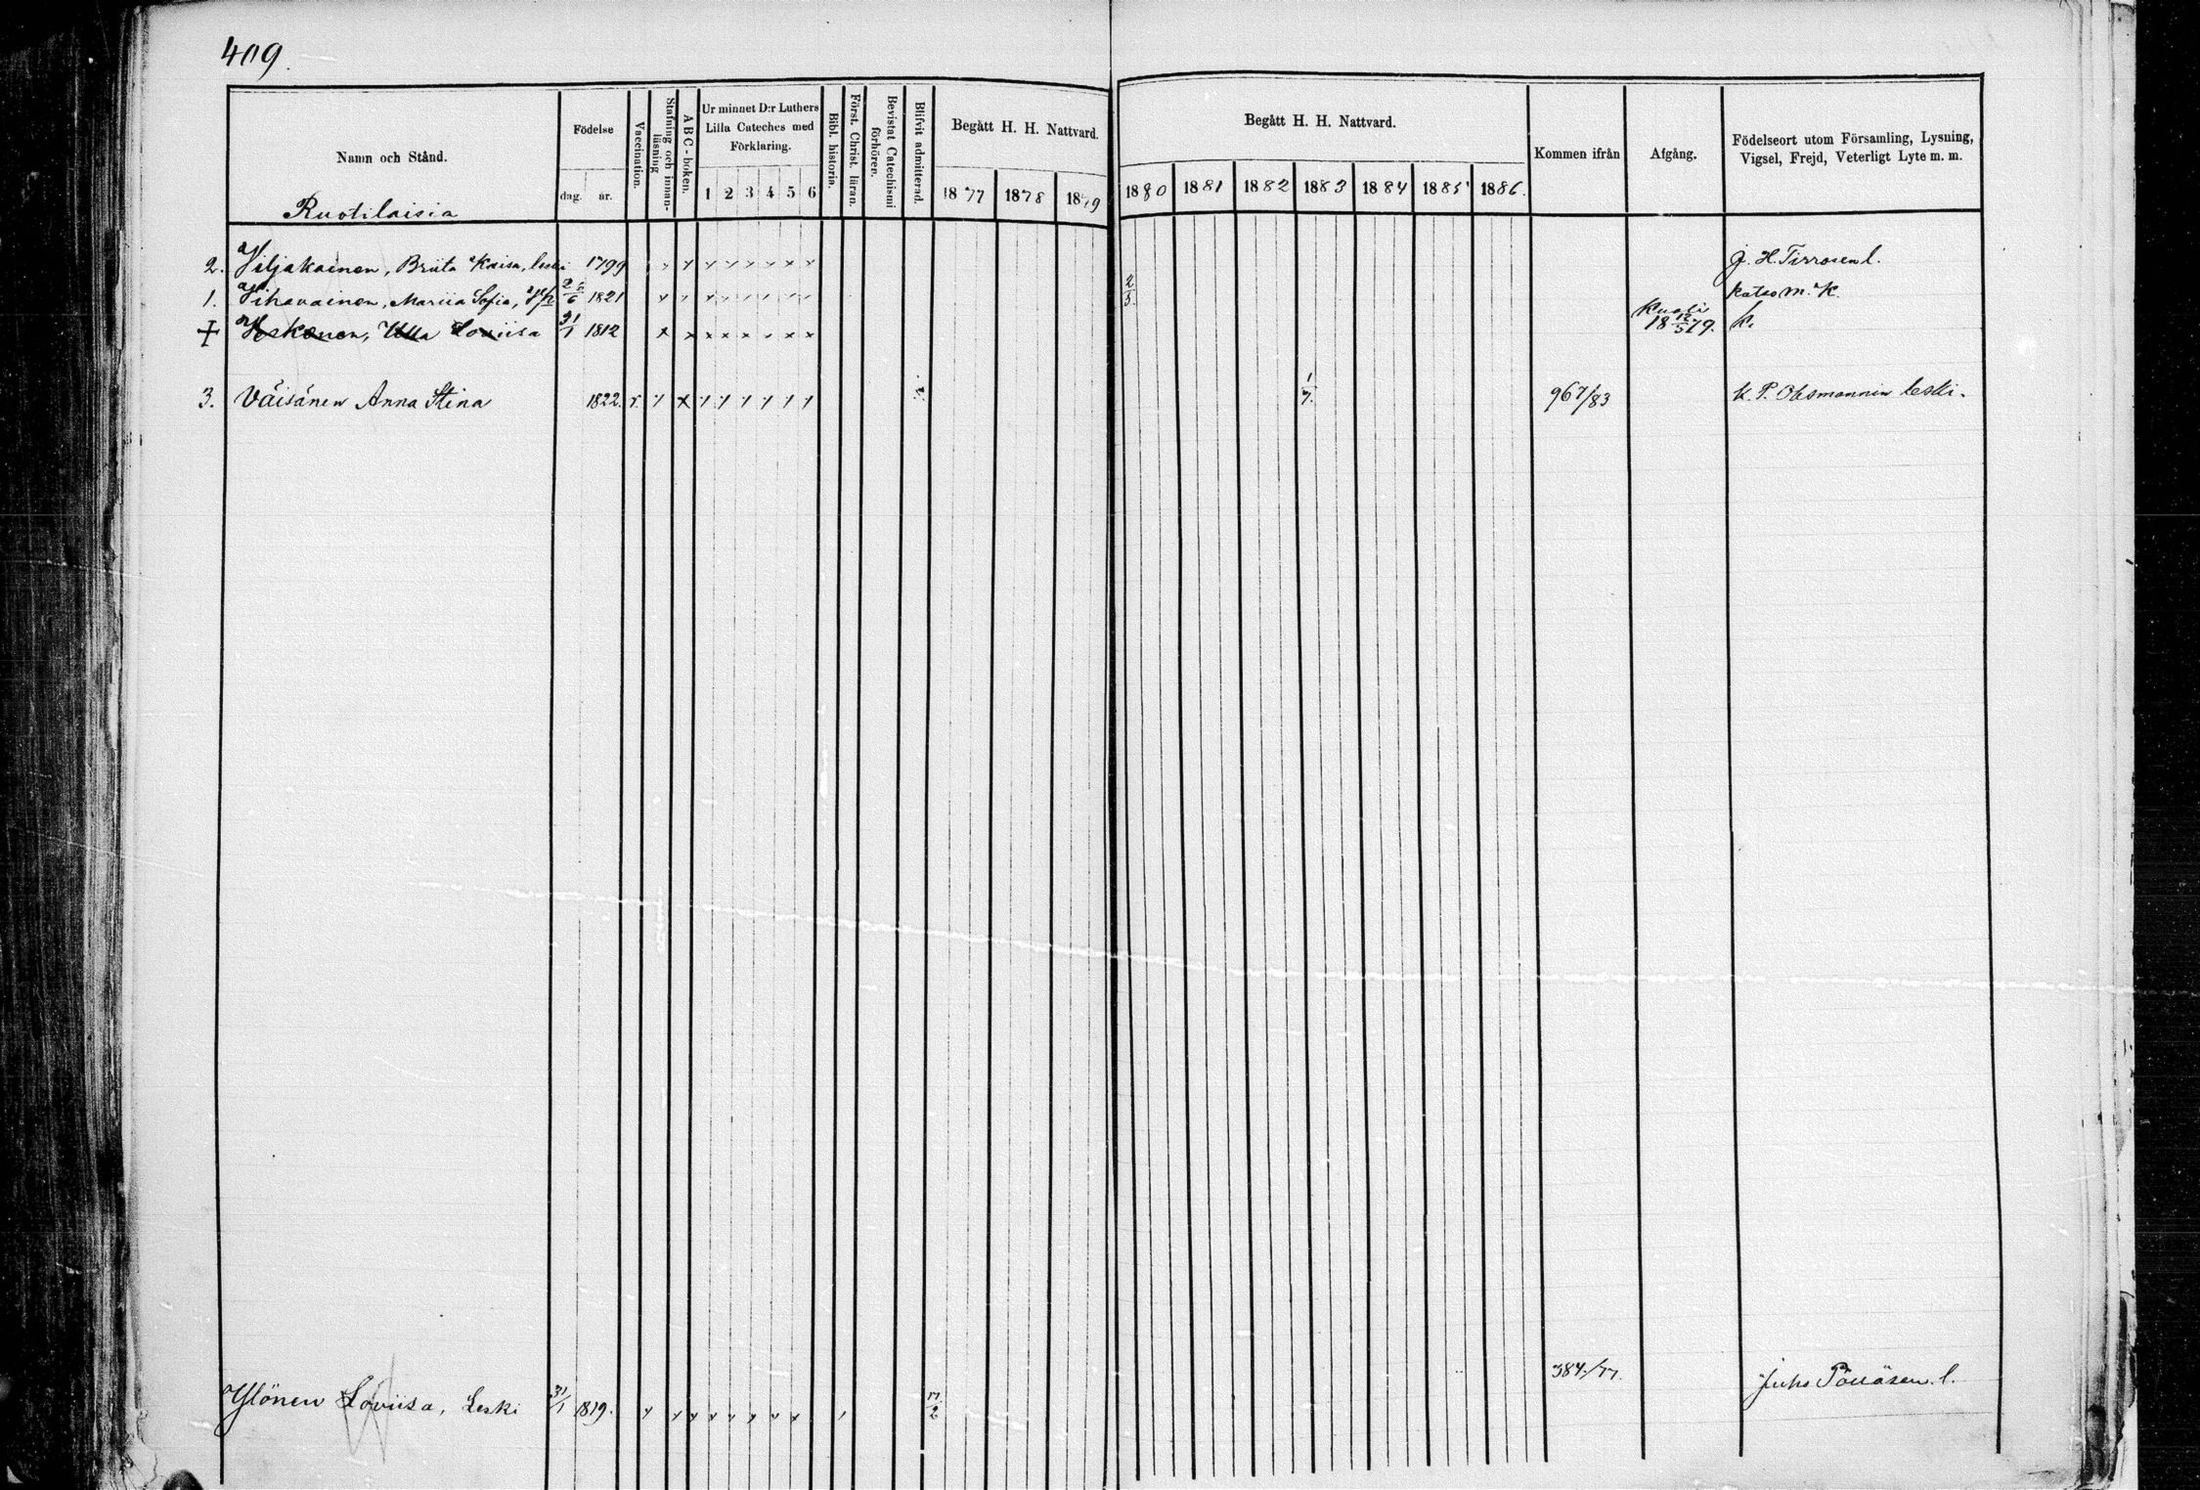 409.
Namn och Stånd.
Födelse
dag. år.
Vaccination.
Stafning och innan-läsning
ABC-boken.
Ur minnet D:r Luthers Lilla Cateches med Förklaring.
1 2 3 4 5 6
Bibl. historia.
Först. Christ. läran.
Bevistat Catechismi förhören.
Blifvit admitterad.
Begått H. H. Nattvard.
1877 1878 1879
Begått H. H. Nattvard.
1880 1881 1882 1883 1884 1885 1886.
Kommen ifrån
Afgång.
Födelseort utom Församling, Lysning, Vigsel, Frejd, Veterligt Lyte m. m.
Ruotilaisia
2. Viljakainen, Briita Kaisa, leski 1799 J. H. Tirrosen l.
1. Vihavainen, Mariia Sofia, 1821 2/3. katso M. K.
+ Loviisa 31/1 1812 Kuoli 18 12/5 79. k.
3. Väisänen Anna Stina 1822. r. 1/7. 967/83 K. P. Oksmannin leski.
Ylönen Loviisa, Leski 31/1 1819. 17/2 384/77. Juho l.